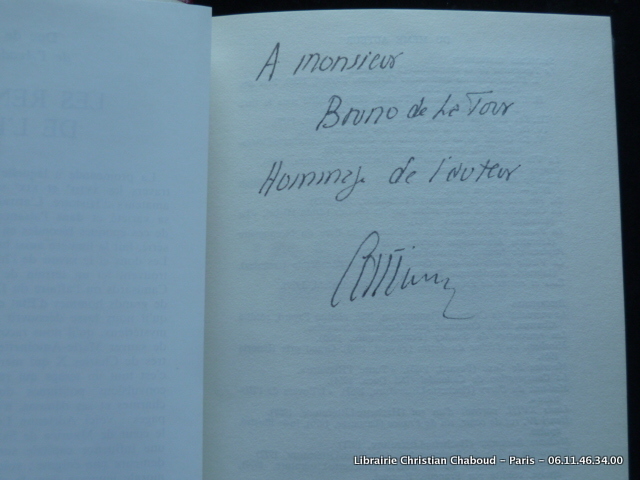 A monsieur
Bruno de La Tour
Hommage de l'auteur
LES REN
DE L'
Librairie Christian Chaboud - Paris - 06.11.46.34.00